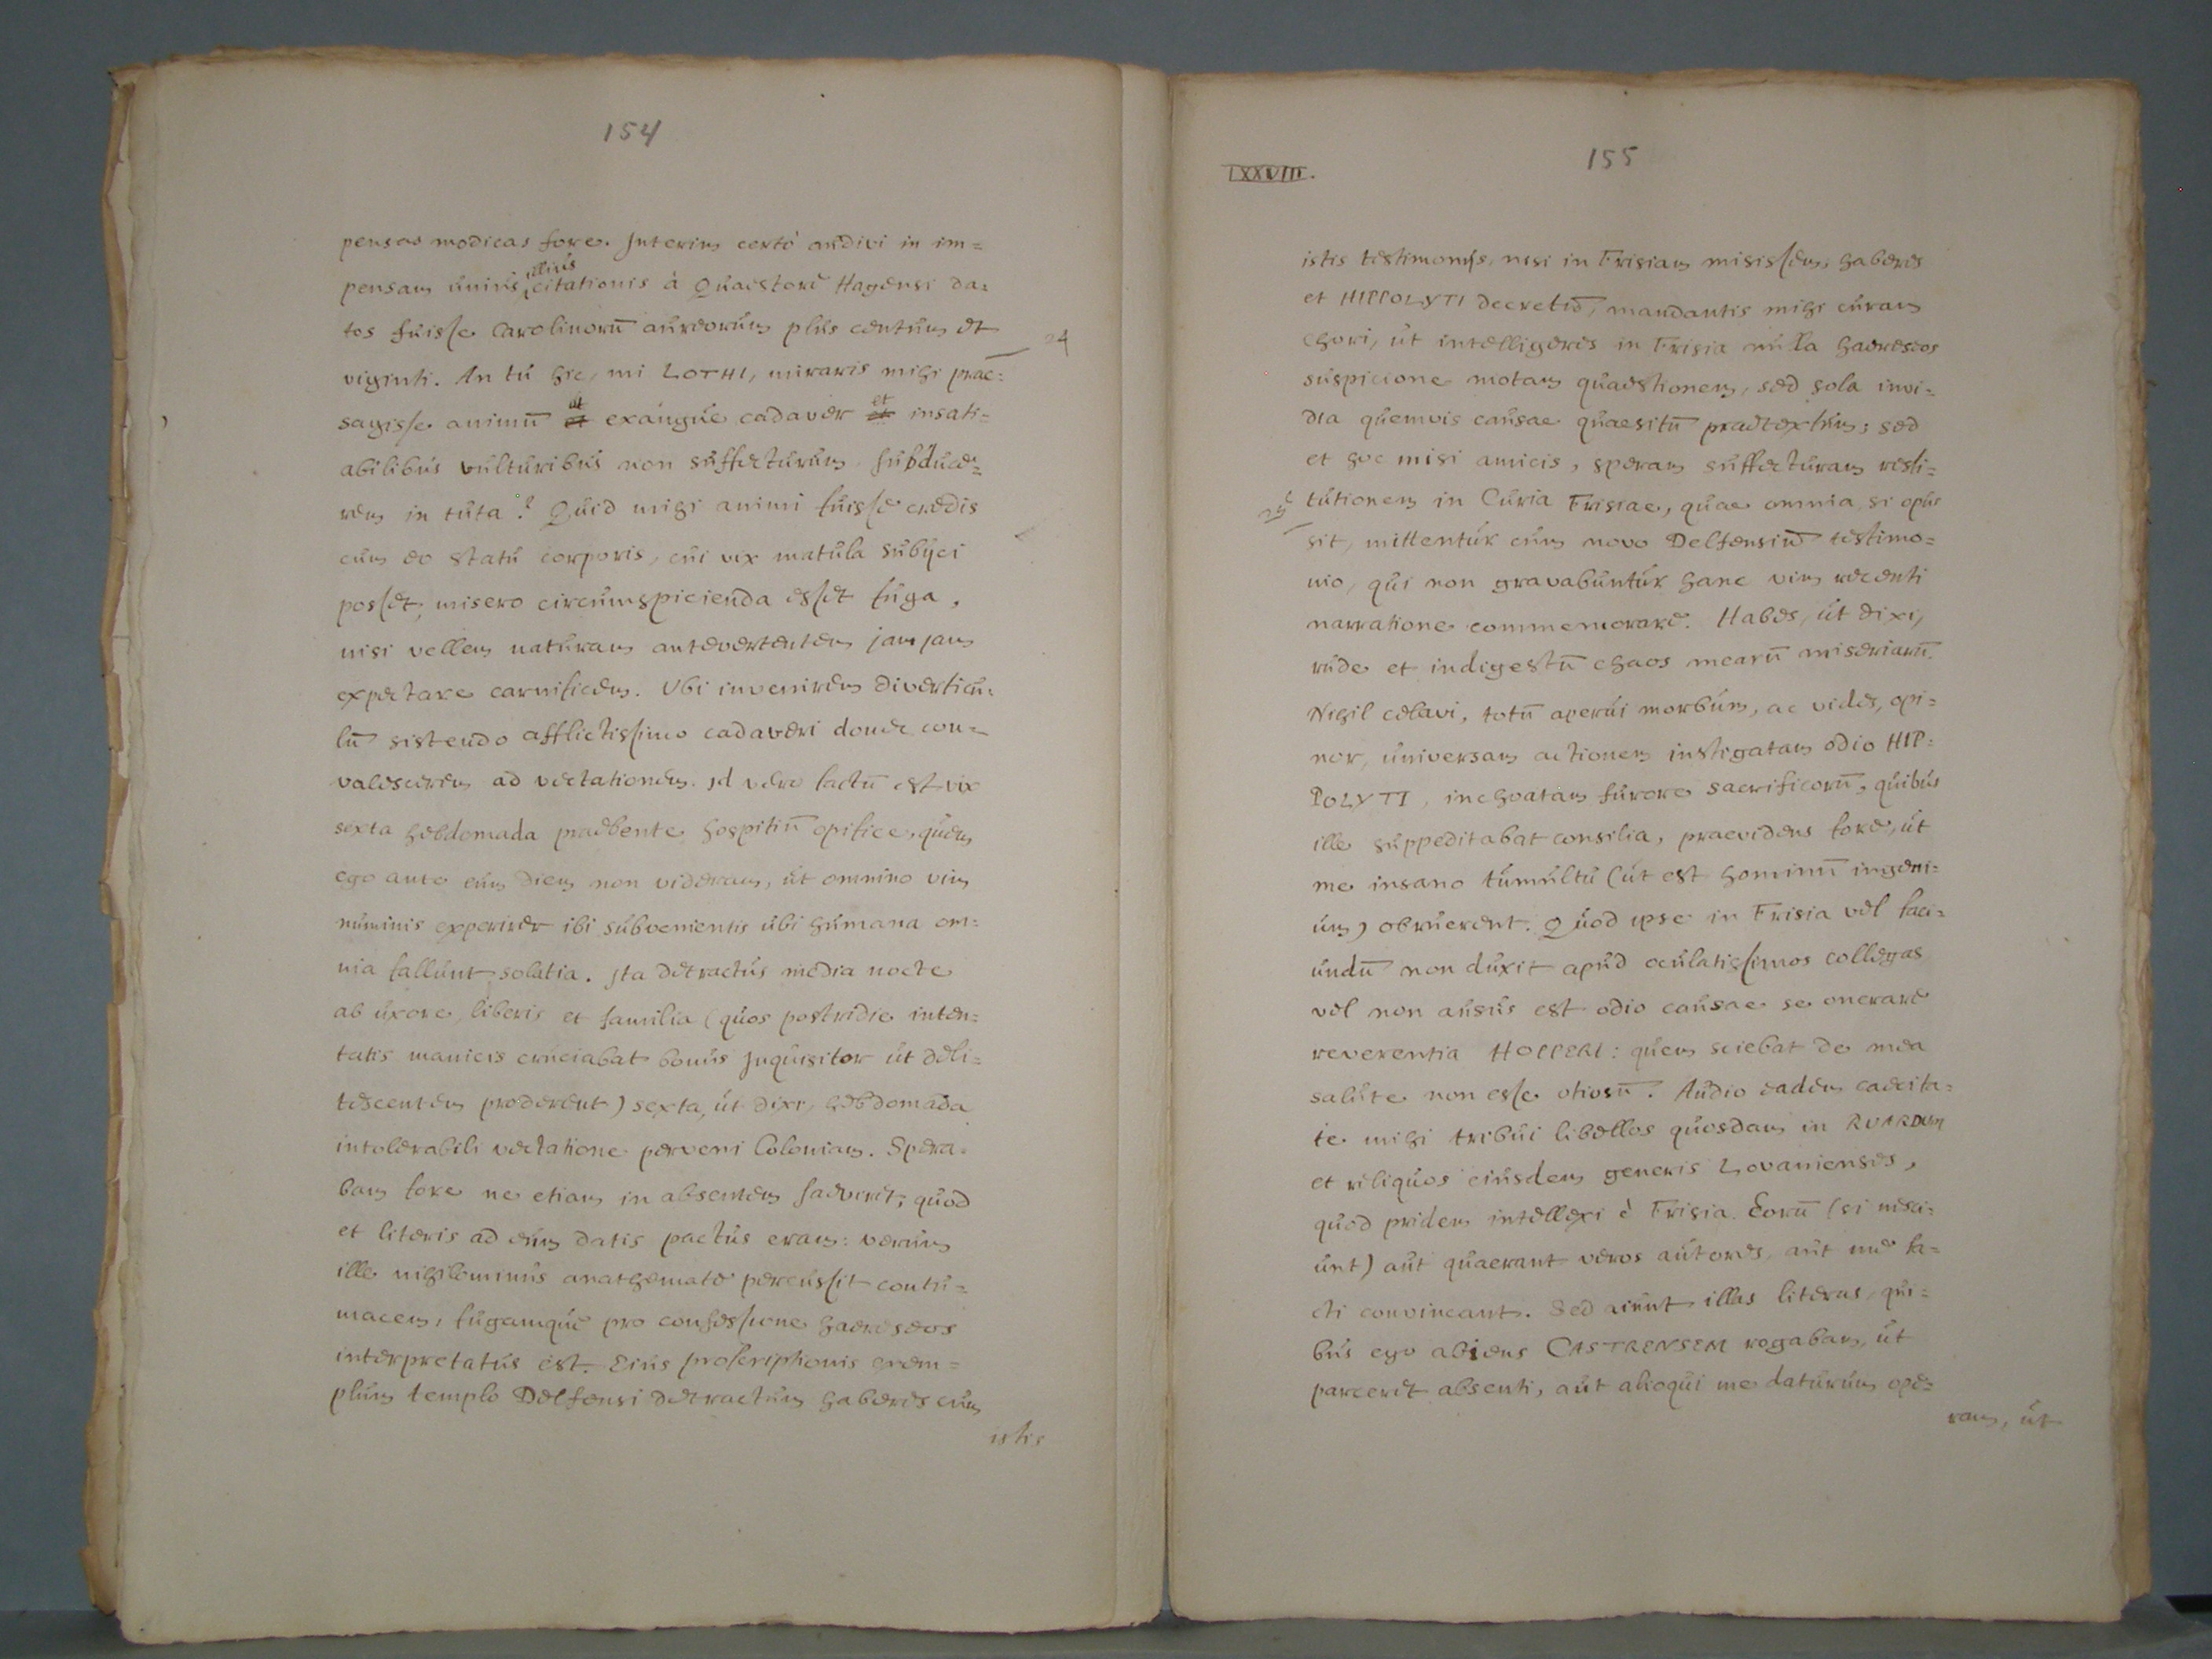 154
pensas modicas fore. Interim certò audivi in im=
pensam unius illius citationis à Quaestore Hagensi da=
tos fuisse Carolinorū aureorum plus centum et
24
viginti. An tu hic, mi LOTHI, miraris mihi prae=
sagisse animū ut exangue cadaver et insati=
abilibus vulturibus non suffecturum, subduce=
rem in tuta? Quid mihi animi fuisse credis
cum eo statu corporis, cui vix matula subijci
posset, misero circumspicienda esset fuga,
nisi vellem naturam antevertentem jam jam
expectare carnificem. Ubi invenirem diverticu=
lū sistendo afflictissimo cadaveri donec con=
valescerem ad vectationem. Id vero factū est vix
sexta hebdomada praebente hospitiū opifice, quem
ego ante eum diem non videram, ut omnino vim
numinis experirer ibi subvenientis ubi humana om=
nia fallunt solatia. Ita detractus media nocte
ab uxore, liberis et familia (quos postridie inten=
tatis manicis cruciabat bonus Inquisitor ut deli=
tescentem proderent) sexta, ut dixi, hebdomada
intolerabili vectatione perveni Coloniam. Spera=
bam fore ne etiam in absentem saeviret; quod
et literis ad eum datis pactus eram: verum
ille nihilominus anathemate percussit contu=
macem, fugamque pro confessione haereseos
interpretatus est. Eius proscriptionis exem=
plum templo Delfensi detractum haberes cum
istis
155
LXXVIII.
istis testimonijs, nisi in Frisiam misissem; haberes
et HIPPOLYTI decretū, mandantis mihi curam
chori, ut intelligeres in Frisia nulla haereseos
suspicione motam quaestionem, sed sola invi=
dia quemvis causae quaesitū praetextum; sed
et hoc misi amicis, speram suffecturam resti=
tutionem in Curia Frisiae, quae omnia, si opus
sit, mittentur cum novo Delfensiū testimo=
nio, qui non gravabuntur hanc vim recenti
narratione commemorare. Habes, ut dixi,
rude et indigestū chaos mearū miseriarū.
Nihil celavi, totū aperui morbum, ac vides, opi=
nor, universam actionem instigatam odio HIP=
POLYTI, inchoatam furore sacrificorū, quibus
ille suppeditabat consilia, praevidens fore, ut
me insano tumultu (ut est hominū ingeni=
um) obruerent. Quod ipse in Frisia vel faci=
undū non duxit apud oculatissimos collegas
vel non ausus est odio causae se onerare
reverentia HOPPERI: quem sciebat de mea
salute non esse otiosū. Audio eadem caecita=
te mihi tribui libellos quosdam in RUARDUM
et reliquos eiusdem generis Lovanienses,
quod pridem intellexi è Frisia. Eorū (si nesci=
unt) aut quaerant veros autores, aut me fa=
cti convincant. Sed aiunt illas literas, qui=
bus ego abiens CASTRENSEM rogabam, ut
parceret absenti, aut alioqui me daturum ope=
ram, ut